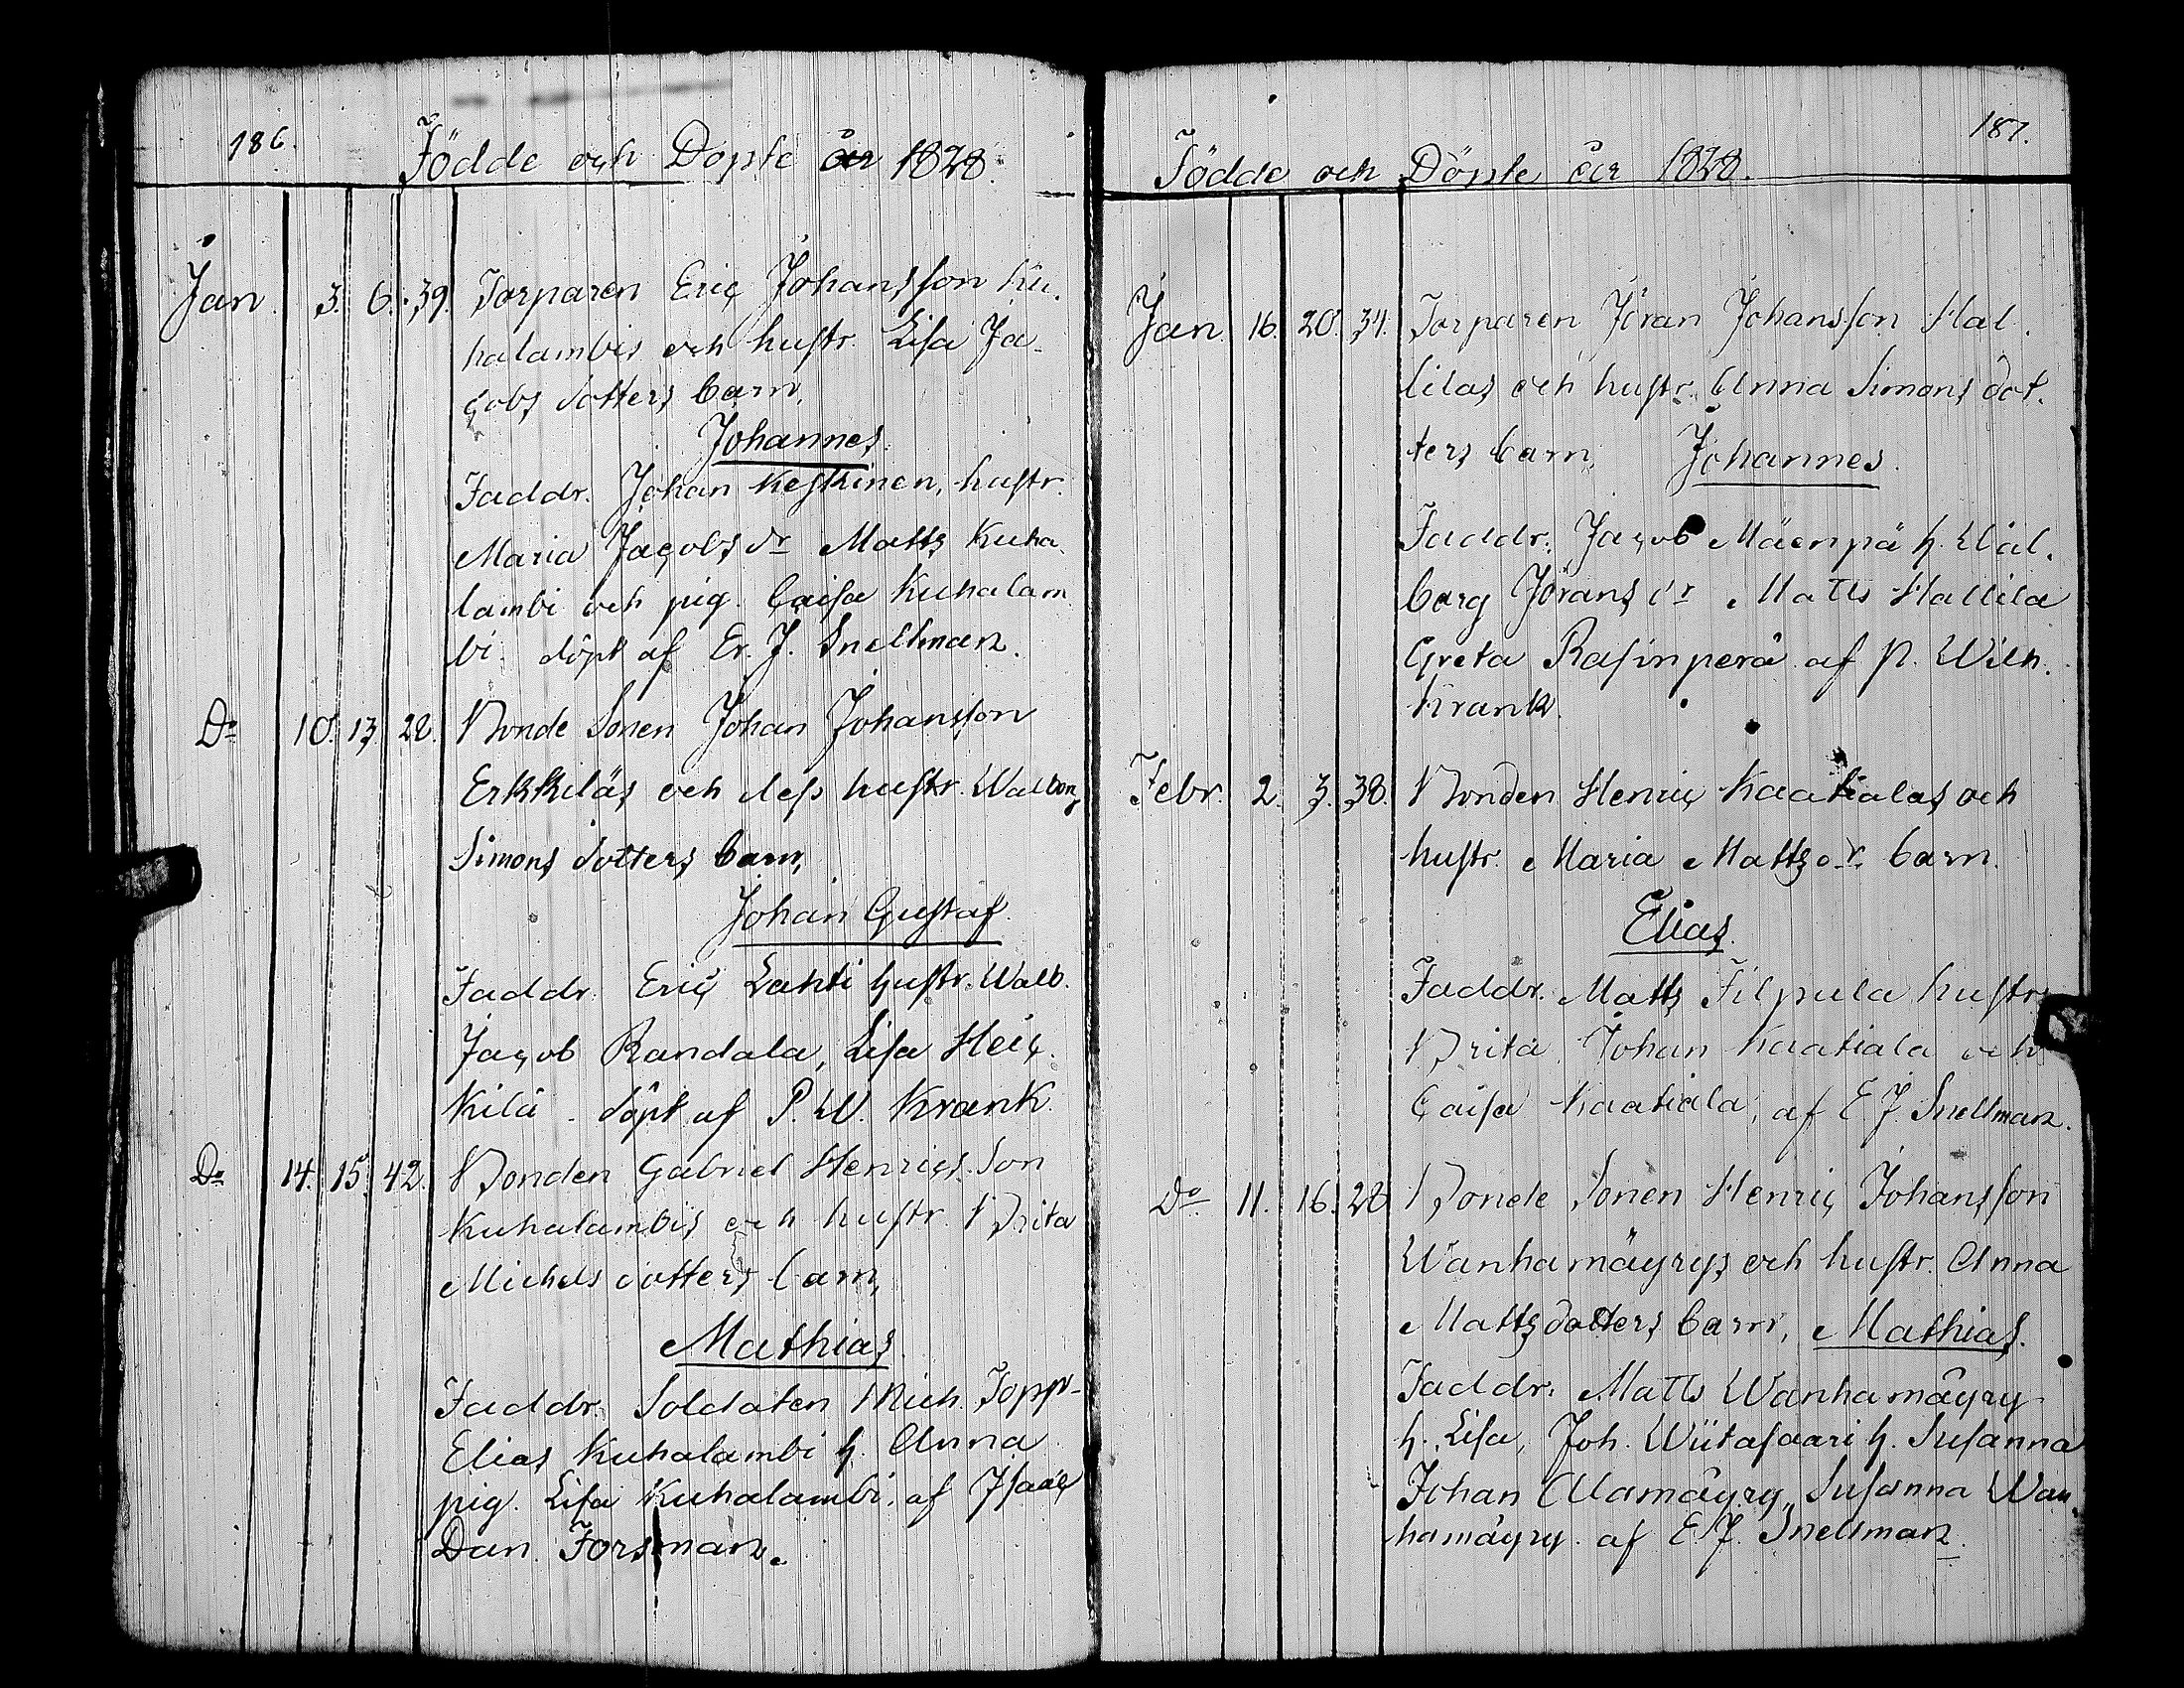 186.
Födde och Döpte år 1828.
Jan. 3. 6. 39. Torparen Eric Johansson Ku-
halambis och hustr. Lisa Ja-
cobs dotters barn,
Johannes.
Faddr. Johan Keskinen, hustr.
Maria Jacobs dr Matts Kuha-
lambi och pig. Caisa Kuhalam-
bi. döpt af Er. J. Snellman.
Do 10. 13. 22. Bonde Sonen Johan Johansson
Erkkiläs och dess hustr. Walborg
Simons dotters barn,
Johan Gustaf.
Faddr. Eric Lahti hustr. Walb.
Jacob Randala, Lisa Heic-
kilä. döpt af P. W. Krank.
Do 14. 15. 42. Bonden Gabriel Henrics Son
Kuhalambis och hustr. Brita
Michels dotters barn,
Mathias.
Faddr. Soldaten Mich. Topp-
Elias Kuhalambi h. Anna
pig. Lisa Kuhalambi, af Isaac
Dan. Forsman.
187.
Födde och Döpte år 1828.
Jan. 16. 20. 34. Torparen Jöran Johansson Hal-
lilas och hustr. Anna Simons dot-
ters barn, Johannes.
Faddr. Jacob Mäenpä h. Wal-
borg Jörans dr Matts Hallila
Greta Rasinperä af P. Wilh.
Krank.
Febr. 2. 3. 38. Bonden Henric Kaatialas och
hustr. Maria Matts dr barn.
Elias.
Faddr. Matts Filpula hustr.
Brita, Johan Kaatiala och
Caisa Kaatiala, af E. J. Snellman.
Do 11. 16. 28 Bonde Sonen Henric Johansson
Wanhamäyrys och hustr. Anna
Matts dotters barn, Mathias.
Faddr. Matts Wanhamäyry
h. Lisa, Joh. Wiitasaari h. Susanna
Johan Alamäyry, Susanna Wan-
hamäyry. af E. J. Snellman.